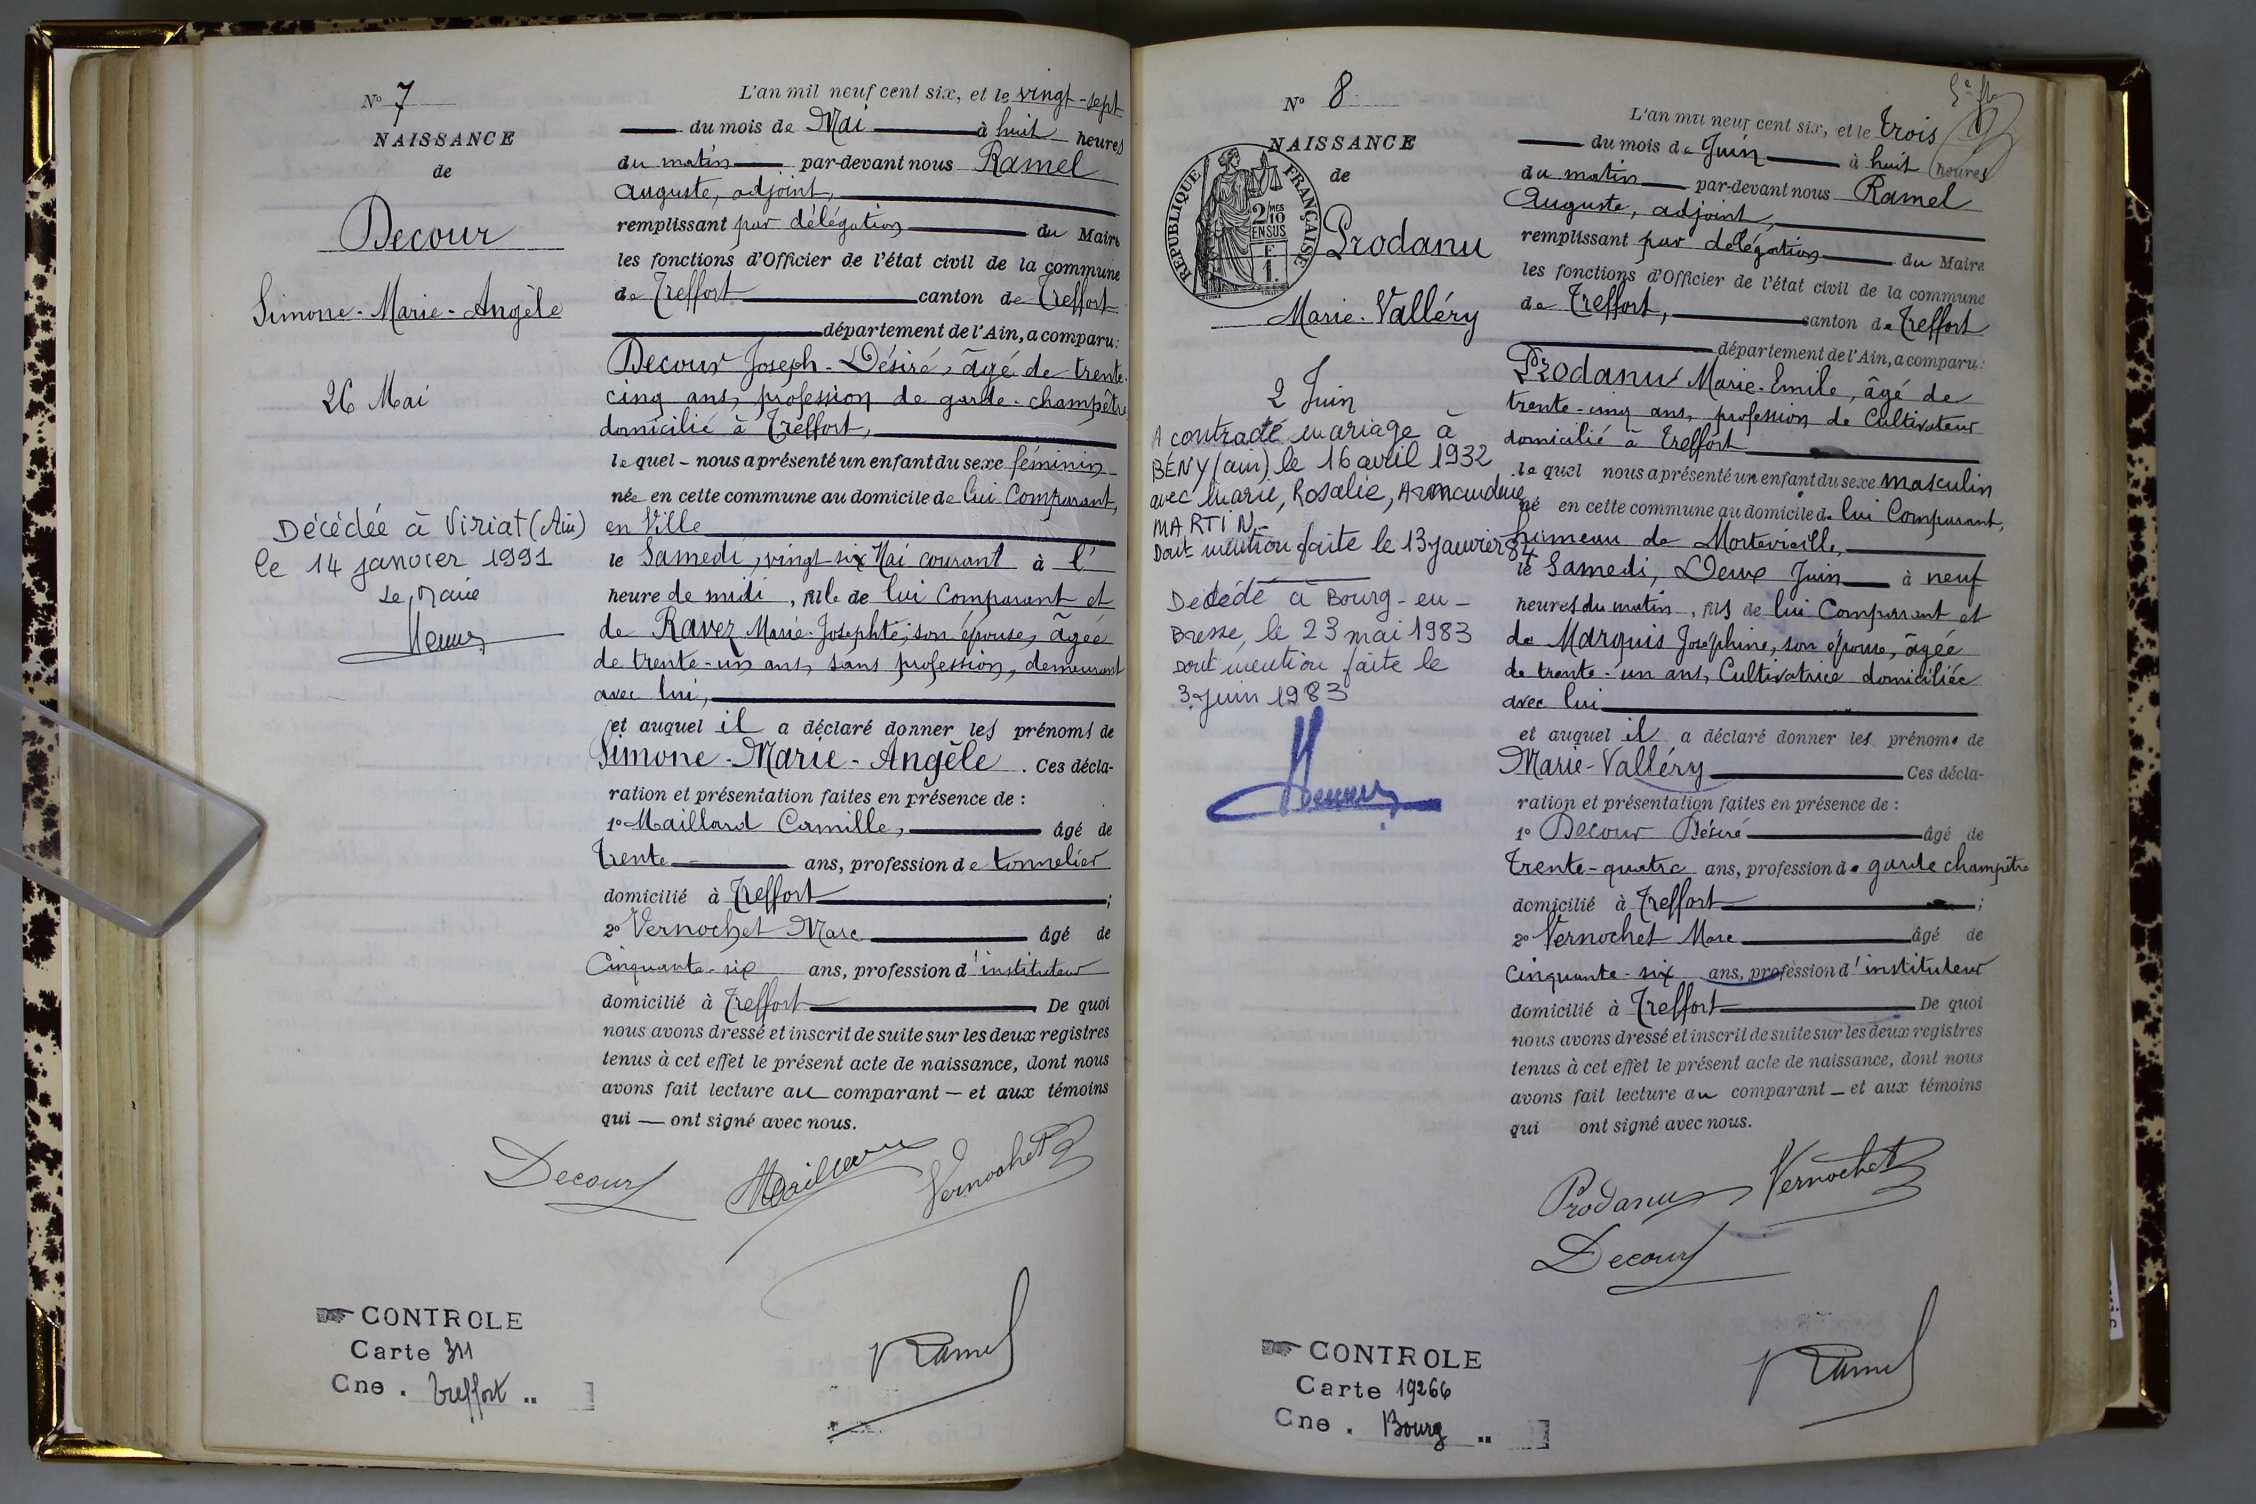 N° 7
NAISSANCE
de
Decour
Simone-Marie-Angèle
26 Mai
Décédée à Viriat (Ain)
le 14 janvier 1991
Le Maire
CONTROLE
Carte 311
Cne. Treffort
L'an mil neuf cent six, et le vingt-sept
du mois de Mai à huit heures
du matin par-devant nous Ramel
Auguste, adjoint,
remplissant par délégation du Maire
les fonctions d'Officier de l'état civil de la commune
de Treffort canton de Treffort
département de l'Ain, a comparu:
Decour Joseph-Désiré, âgé de trente-
cinq ans, profession de garde-champêtre
domicilié à Treffort,
lequel - nous a présenté un enfant du sexe féminin
née en cette commune au domicile de lui Comparant,
en Ville
le Samedi, vingt six Mai courant à l'
heure de midi, fille de lui Comparant et
de Ravez Marie-Josephte, son épouse, âgée
de trente-un ans, sans profession, demeurant
avec lui,
et auquel il a déclaré donner les prénoms de
Simone-Marie-Angèle. Ces décla-
ration et présentation faites en présence de :
1° Maillard Camille, âgé de
Trente ans, profession de tonnelier
domicilié à Treffort ;
2° Vernochet Marc âgé de
Cinquante-six ans, profession d'instituteur
domicilié à Treffort De quoi
nous avons dressé et inscrit de suite sur les deux registres
tenus à cet effet le présent acte de naissance, dont nous
avons fait lecture au comparant — et aux témoins
qui — ont signé avec nous.
Decour Maillard Vernochet
Ramel
N° 8
NAISSANCE
de
REPUBLIQUE FRANÇAISE
2/10 MES
EN SUS
F
1.
Prodanu
Marie-Valléry
2 Juin
A contracté mariage à
BÉNY (ain) le 16 avril 1932
avec Marie, Rosalie, Armandine
MARTIN.
Dont mention faite le 13 janvier 84
Décédé à Bourg-en-
Bresse, le 23 mai 1983
Dont mention faite le
3 Juin 1983
CONTROLE
Carte 19266
Cne. Bourg
L'an mil neuf cent six, et le trois
du mois de Juin à huit heures
du matin par-devant nous Ramel
Auguste, adjoint,
remplissant par délégation du Maire
les fonctions d'Officier de l'état civil de la commune
de Treffort, canton de Treffort
département de l'Ain, a comparu:
Prodanu Marie-Emile, âgé de
trente-cinq ans, profession de Cultivateur
domicilié à Treffort
lequel nous a présenté un enfant du sexe masculin
né en cette commune au domicile de lui Comparant,
hameau de Montevieille,
le Samedi, Deux Juin à neuf
heures du matin, fils de lui Comparant et
de Marquis Joséphine, son épouse, âgée
de trente-un ans, Cultivatrice domiciliée
avec lui
et auquel il a déclaré donner les prénoms de
Marie-Valléry Ces décla-
ration et présentation faites en présence de :
1° Decour Désiré âgé de
Trente-quatre ans, profession de garde champêtre
domicilié à Treffort ;
2° Vernochet Marc âgé de
Cinquante-six ans, profession d'instituteur
domicilié à Treffort De quoi
nous avons dressé et inscrit de suite sur les deux registres
tenus à cet effet le présent acte de naissance, dont nous
avons fait lecture au comparant — et aux témoins
qui ont signé avec nous.
Prodanu Vernochet
Decour
Ramel